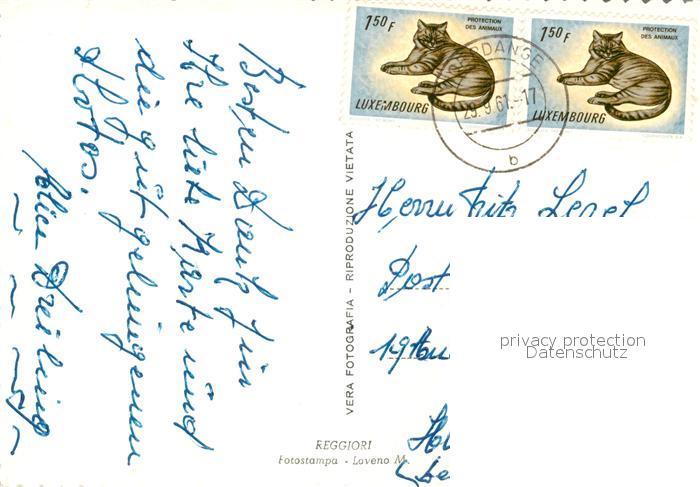 Besten Dank für
Ihre liebe Karte und
die gut gelungenen
Photos.
Alice
1.50 F
PROTECTION
DES ANIMAUX
LUXEMBOURG
1.50 F
PROTECTION
DES ANIMAUX
LUXEMBOURG
29.9.61.-17
b
VERA FOTOGRAFIA - RIPRODUZIONE VIETATA
Herrn Fritz
Post
privacy protection
Datenschutz
REGGIORI
Fotostampa - Laveno M.